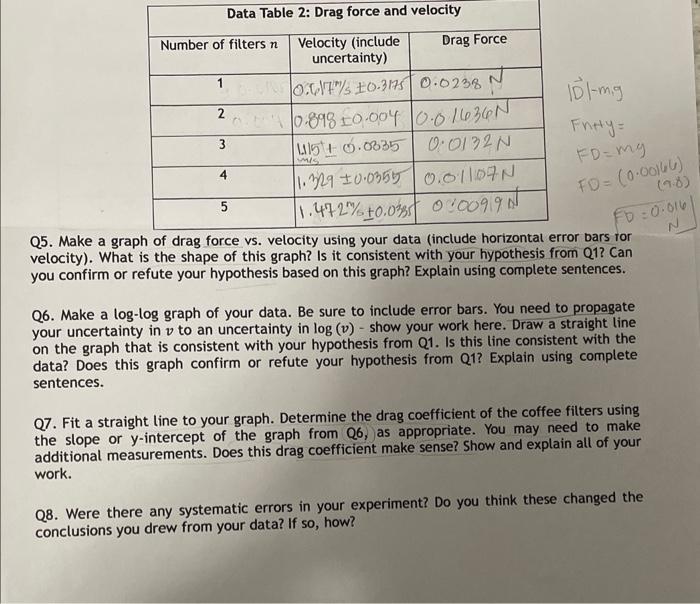 Data Table 2: Drag force and velocity
Number of filters n Velocity (include uncertainty) Drag Force
1 0.617m/s ±0.3175 0.0238 N
2 0.898 ±0.004 0.01636N
3 1.115 ± 0.0335 m/s 0.0132N
4 1.329 ±0.0355 0.01107N
5 1.472m/s 0.00919N
|D|-mg
FD=mg
FD= (0.00166)
(9.8)
FD=0.016
N
Q5. Make a graph of drag force vs. velocity using your data (include horizontal error bars for
velocity). What is the shape of this graph? Is it consistent with your hypothesis from Q1? Can
you confirm or refute your hypothesis based on this graph? Explain using complete sentences.
Q6. Make a log-log graph of your data. Be sure to include error bars. You need to propagate
your uncertainty in v to an uncertainty in log (v) - show your work here. Draw a straight line
on the graph that is consistent with your hypothesis from Q1. Is this line consistent with the
data? Does this graph confirm or refute your hypothesis from Q1? Explain using complete
sentences.
Q7. Fit a straight line to your graph. Determine the drag coefficient of the coffee filters using
the slope or y-intercept of the graph from Q6, as appropriate. You may need to make
additional measurements. Does this drag coefficient make sense? Show and explain all of your
work.
Q8. Were there any systematic errors in your experiment? Do you think these changed the
conclusions you drew from your data? If so, how?